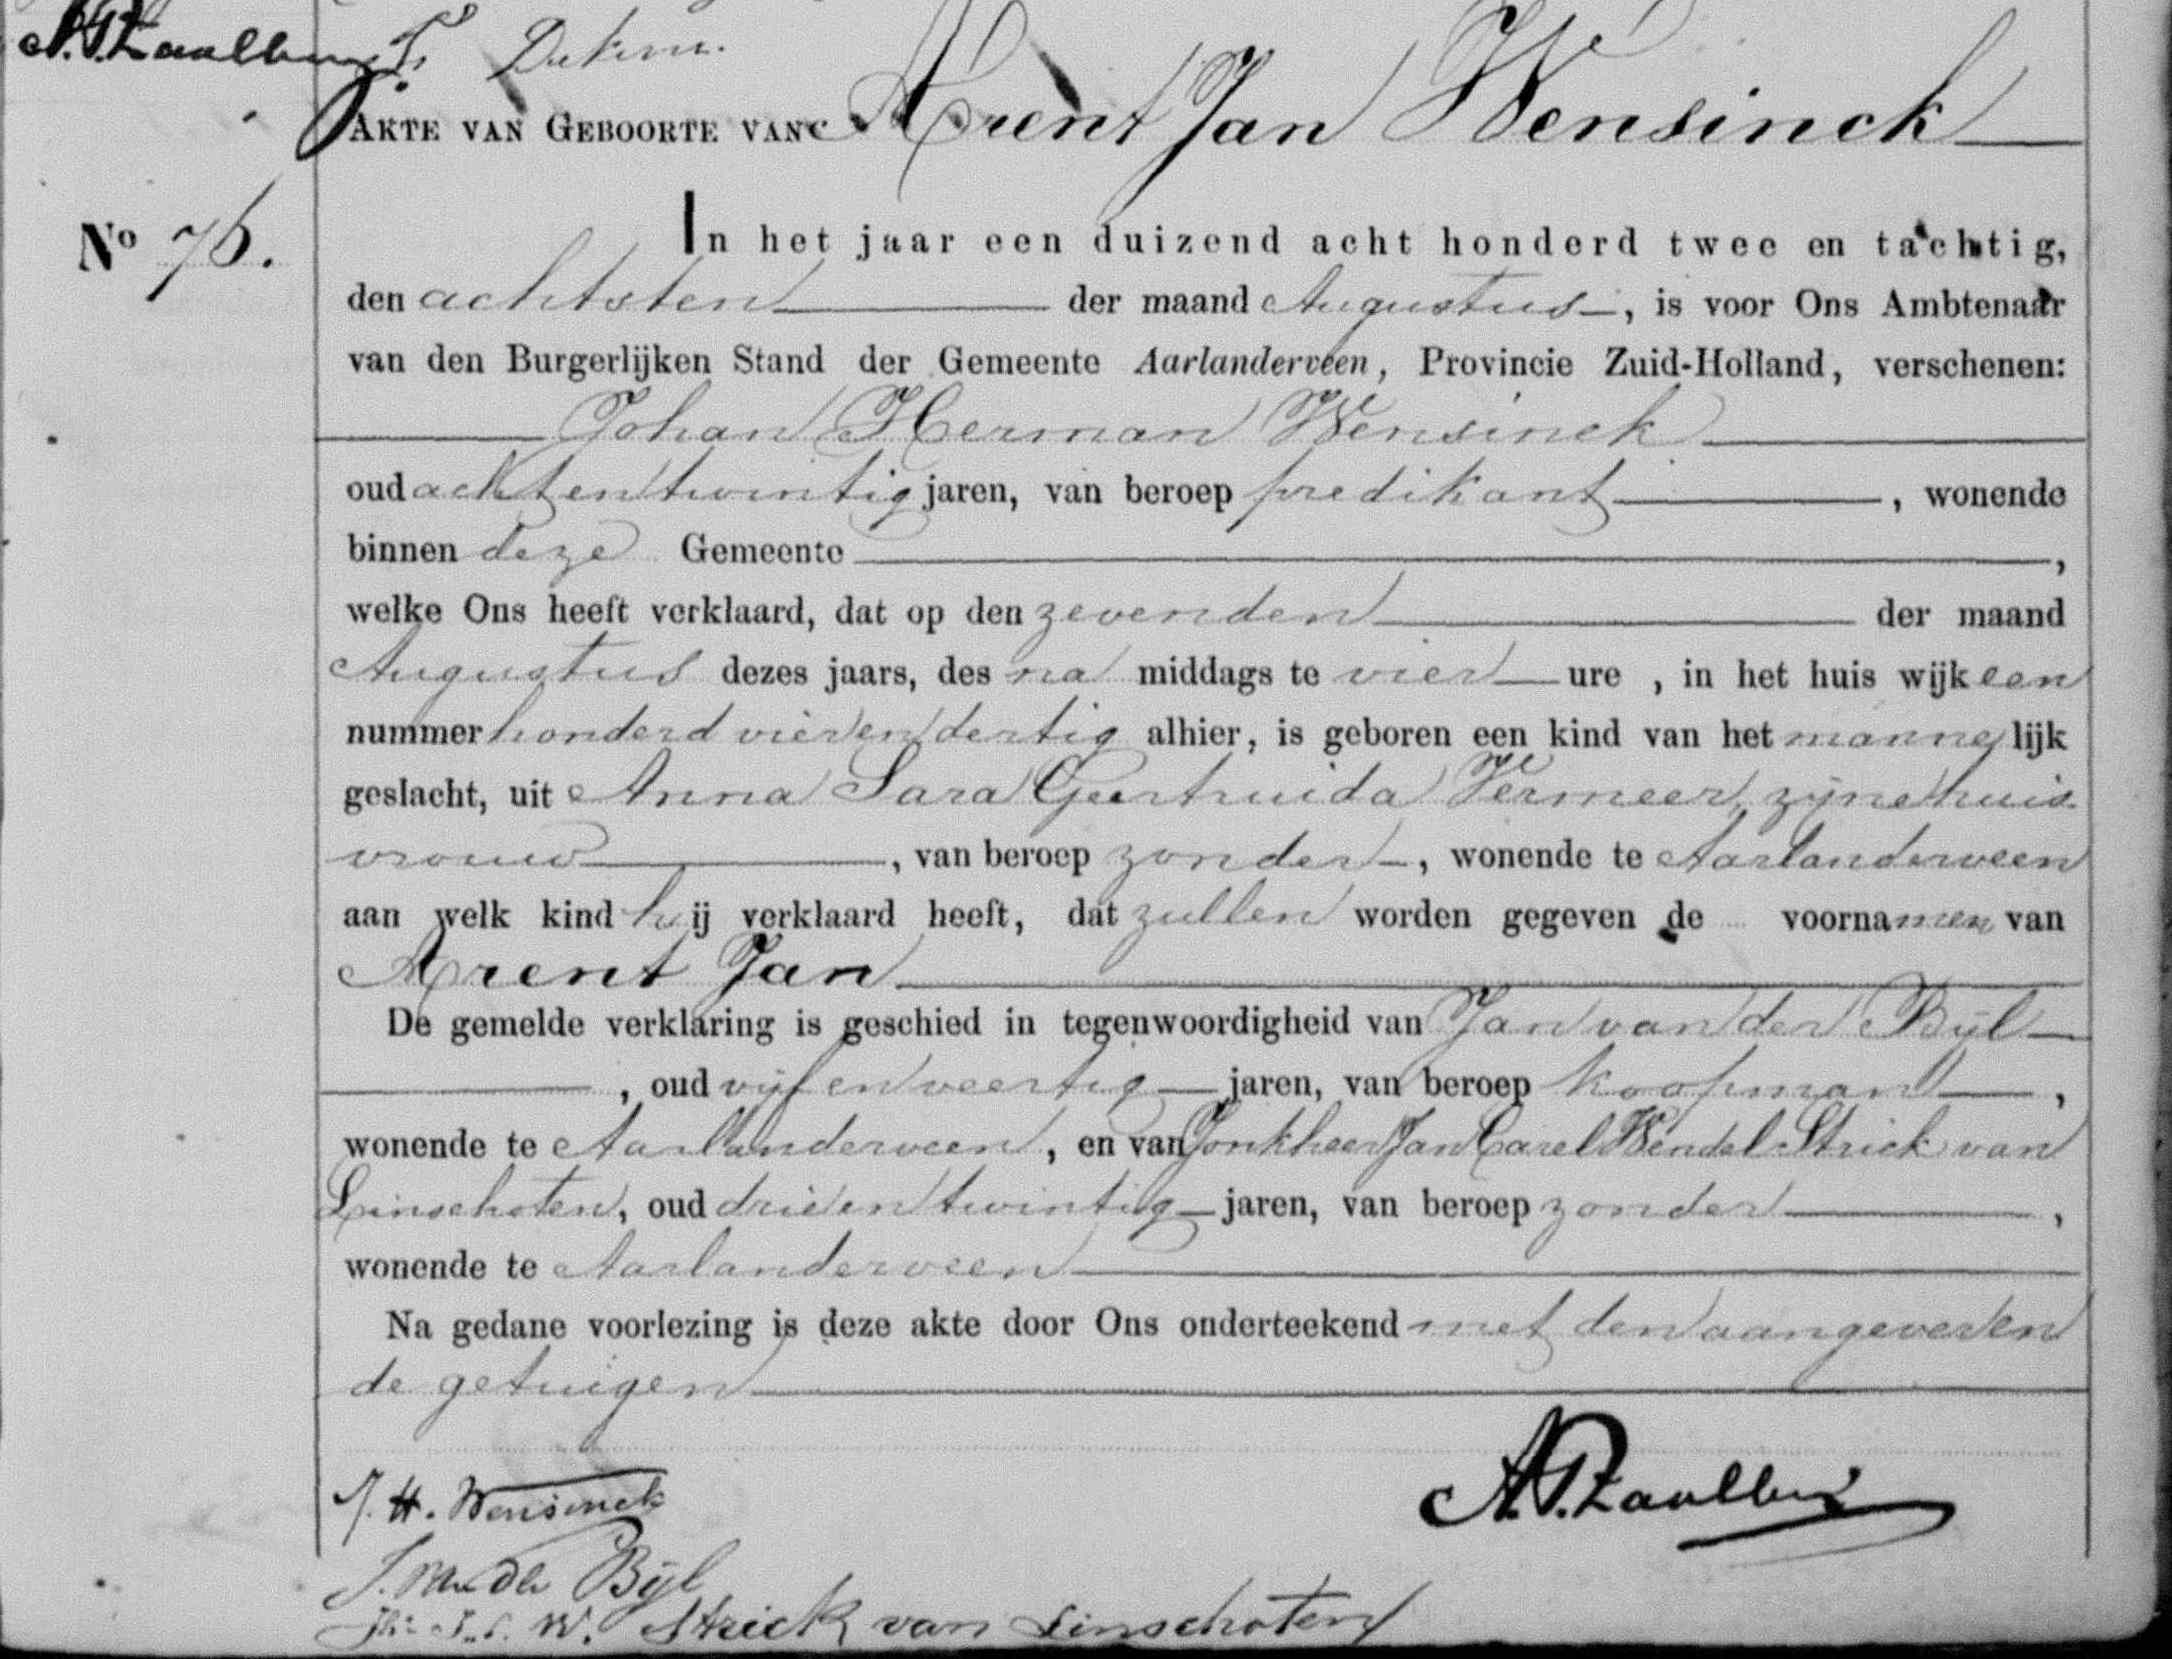 AKTE VAN GEBOORTE VAN Arent Jan Wensinck
No 76.
In het jaar een duizend acht honderd twee en tachtig,
den achtsten der maand Augustus, is voor Ons Ambtenaar
van den Burgerlijken Stand der Gemeente Aarlanderveen, Provincie Zuid-Holland, verschenen:
Johan Herman Wensinck
oud achtentwintig jaren, van beroep predikant, wonende
binnen deze Gemeente,
welke Ons heeft verklaard, dat op den zevenden der maand
Augustus dezes jaars, des na middags te vier ure, in het huis wijk een
nummer honderd vierendertig alhier, is geboren een kind van het mannelijk
geslacht, uit Anna Sara Geertruida Vermeer, zijne huis
vrouw, van beroep zonder, wonende te Aarlanderveen
aan welk kind hij verklaard heeft, dat zullen worden gegeven de voornamen van
Arent Jan
De gemelde verklaring is geschied in tegenwoordigheid van Jan van der Bijl
, oud vijfenveertig jaren, van beroep koopman,
wonende te Aarlanderveen, en van Jonkheer Jan Carel Wendel Strick van
Linschoten, oud drieëntwintig jaren, van beroep zonder,
wonende te Aarlanderveen
Na gedane voorlezing is deze akte door Ons onderteekend met den aangever en
de getuigen
J. H. Wensinck
J. van der Bijl
W. Strick van Linschoten